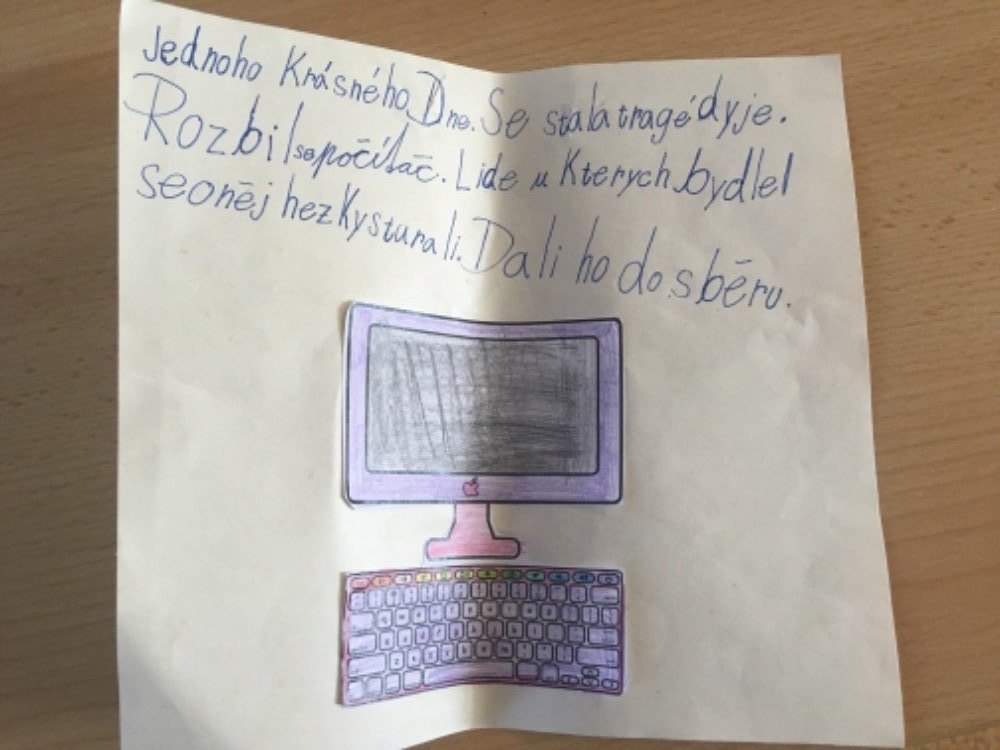 Jednoho Krásného Dne. Se stala tragédyje.
Rozbil se počítač. Lide u Kterych bydlel
se oněj hezky starali. Dali ho do sběru.